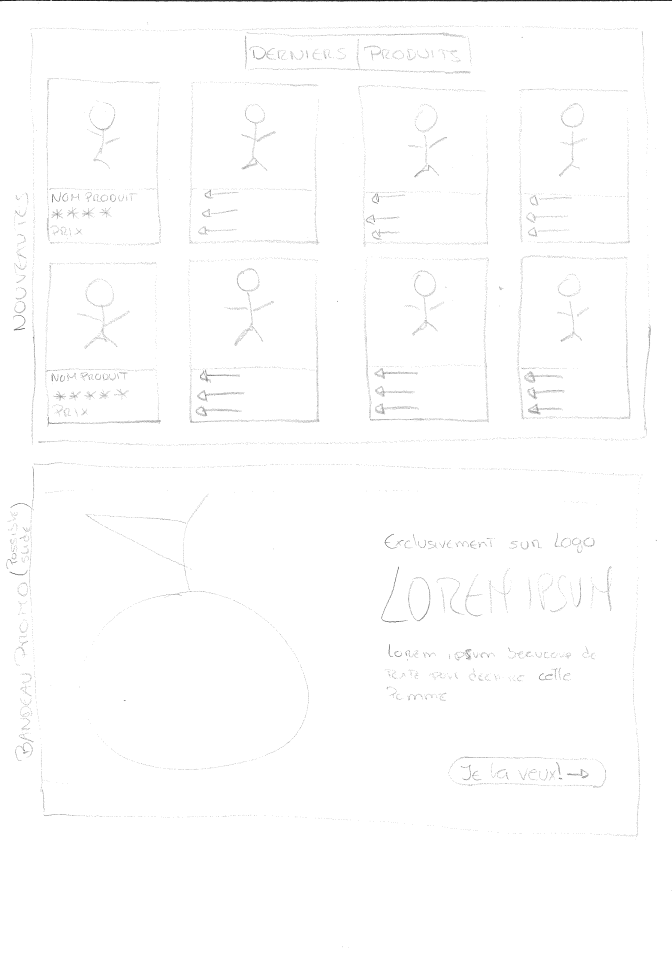 DERNIERS PRODUITS
NOUVEAUTES
NOM PRODUIT
****
PRIX
NOM PRODUIT
*****
PRIX
BANDEAU PROMO (Possible slide)
Exclusivement sur Logo
LOREM IPSUM
Lorem ipsum beaucoup de
texte pour cette
Je la veux! →